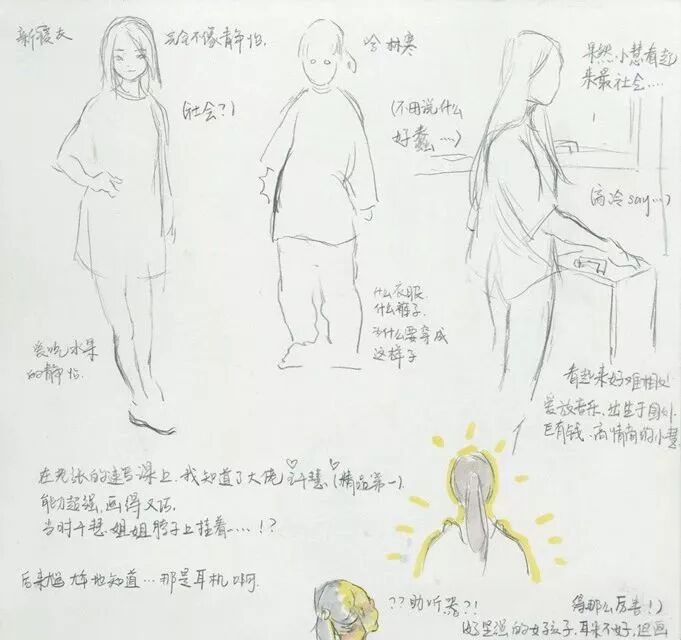 新寝友
完全不像静怡.
(社会?)
爱吃水果
的静怡.
冷林寒
(不用说什么
好蠢...)
什么衣服
什么裤子.
为什么要穿成
这样子
果然小慧看起
来最社会....
(高冷say...)
看起来好难相处
爱放音乐.出生于国外.
巨有钱.高情商的小慧
在老张的速写课上.我知道了大佬 千慧.(精品第一).
能力超强.画得又巧.
当时千慧.姐姐脖子上挂着....!?
后来尴尬地知道...那是耳机啊.
??助听器?!
得那么厉害!)
的女孩子.耳朵不好.但画